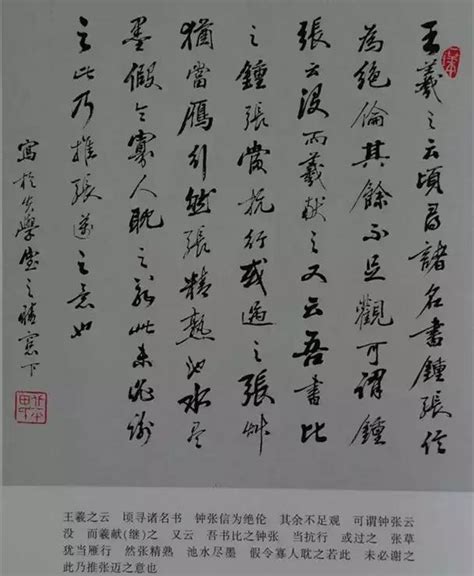 王羲之云頃尋諸名書鍾張信
為絕倫其餘不足觀可謂鍾
張云沒而羲獻之又云吾書比
之鍾張當抗行或過之張草
猶當鴈行然張精熟池水盡
墨假令寡人耽之若此未必謝
之此乃推張邁之意也
寫於
學
之
窗下
王羲之云 顷寻诸名书 钟张信为绝伦 其余不足观 可谓钟张云
没 而羲献(继)之 又云 吾书比之钟张 当抗行 或过之 张草
犹当雁行 然张精熟 池水尽墨 假令寡人耽之若此 未必谢之
此乃推张迈之意也